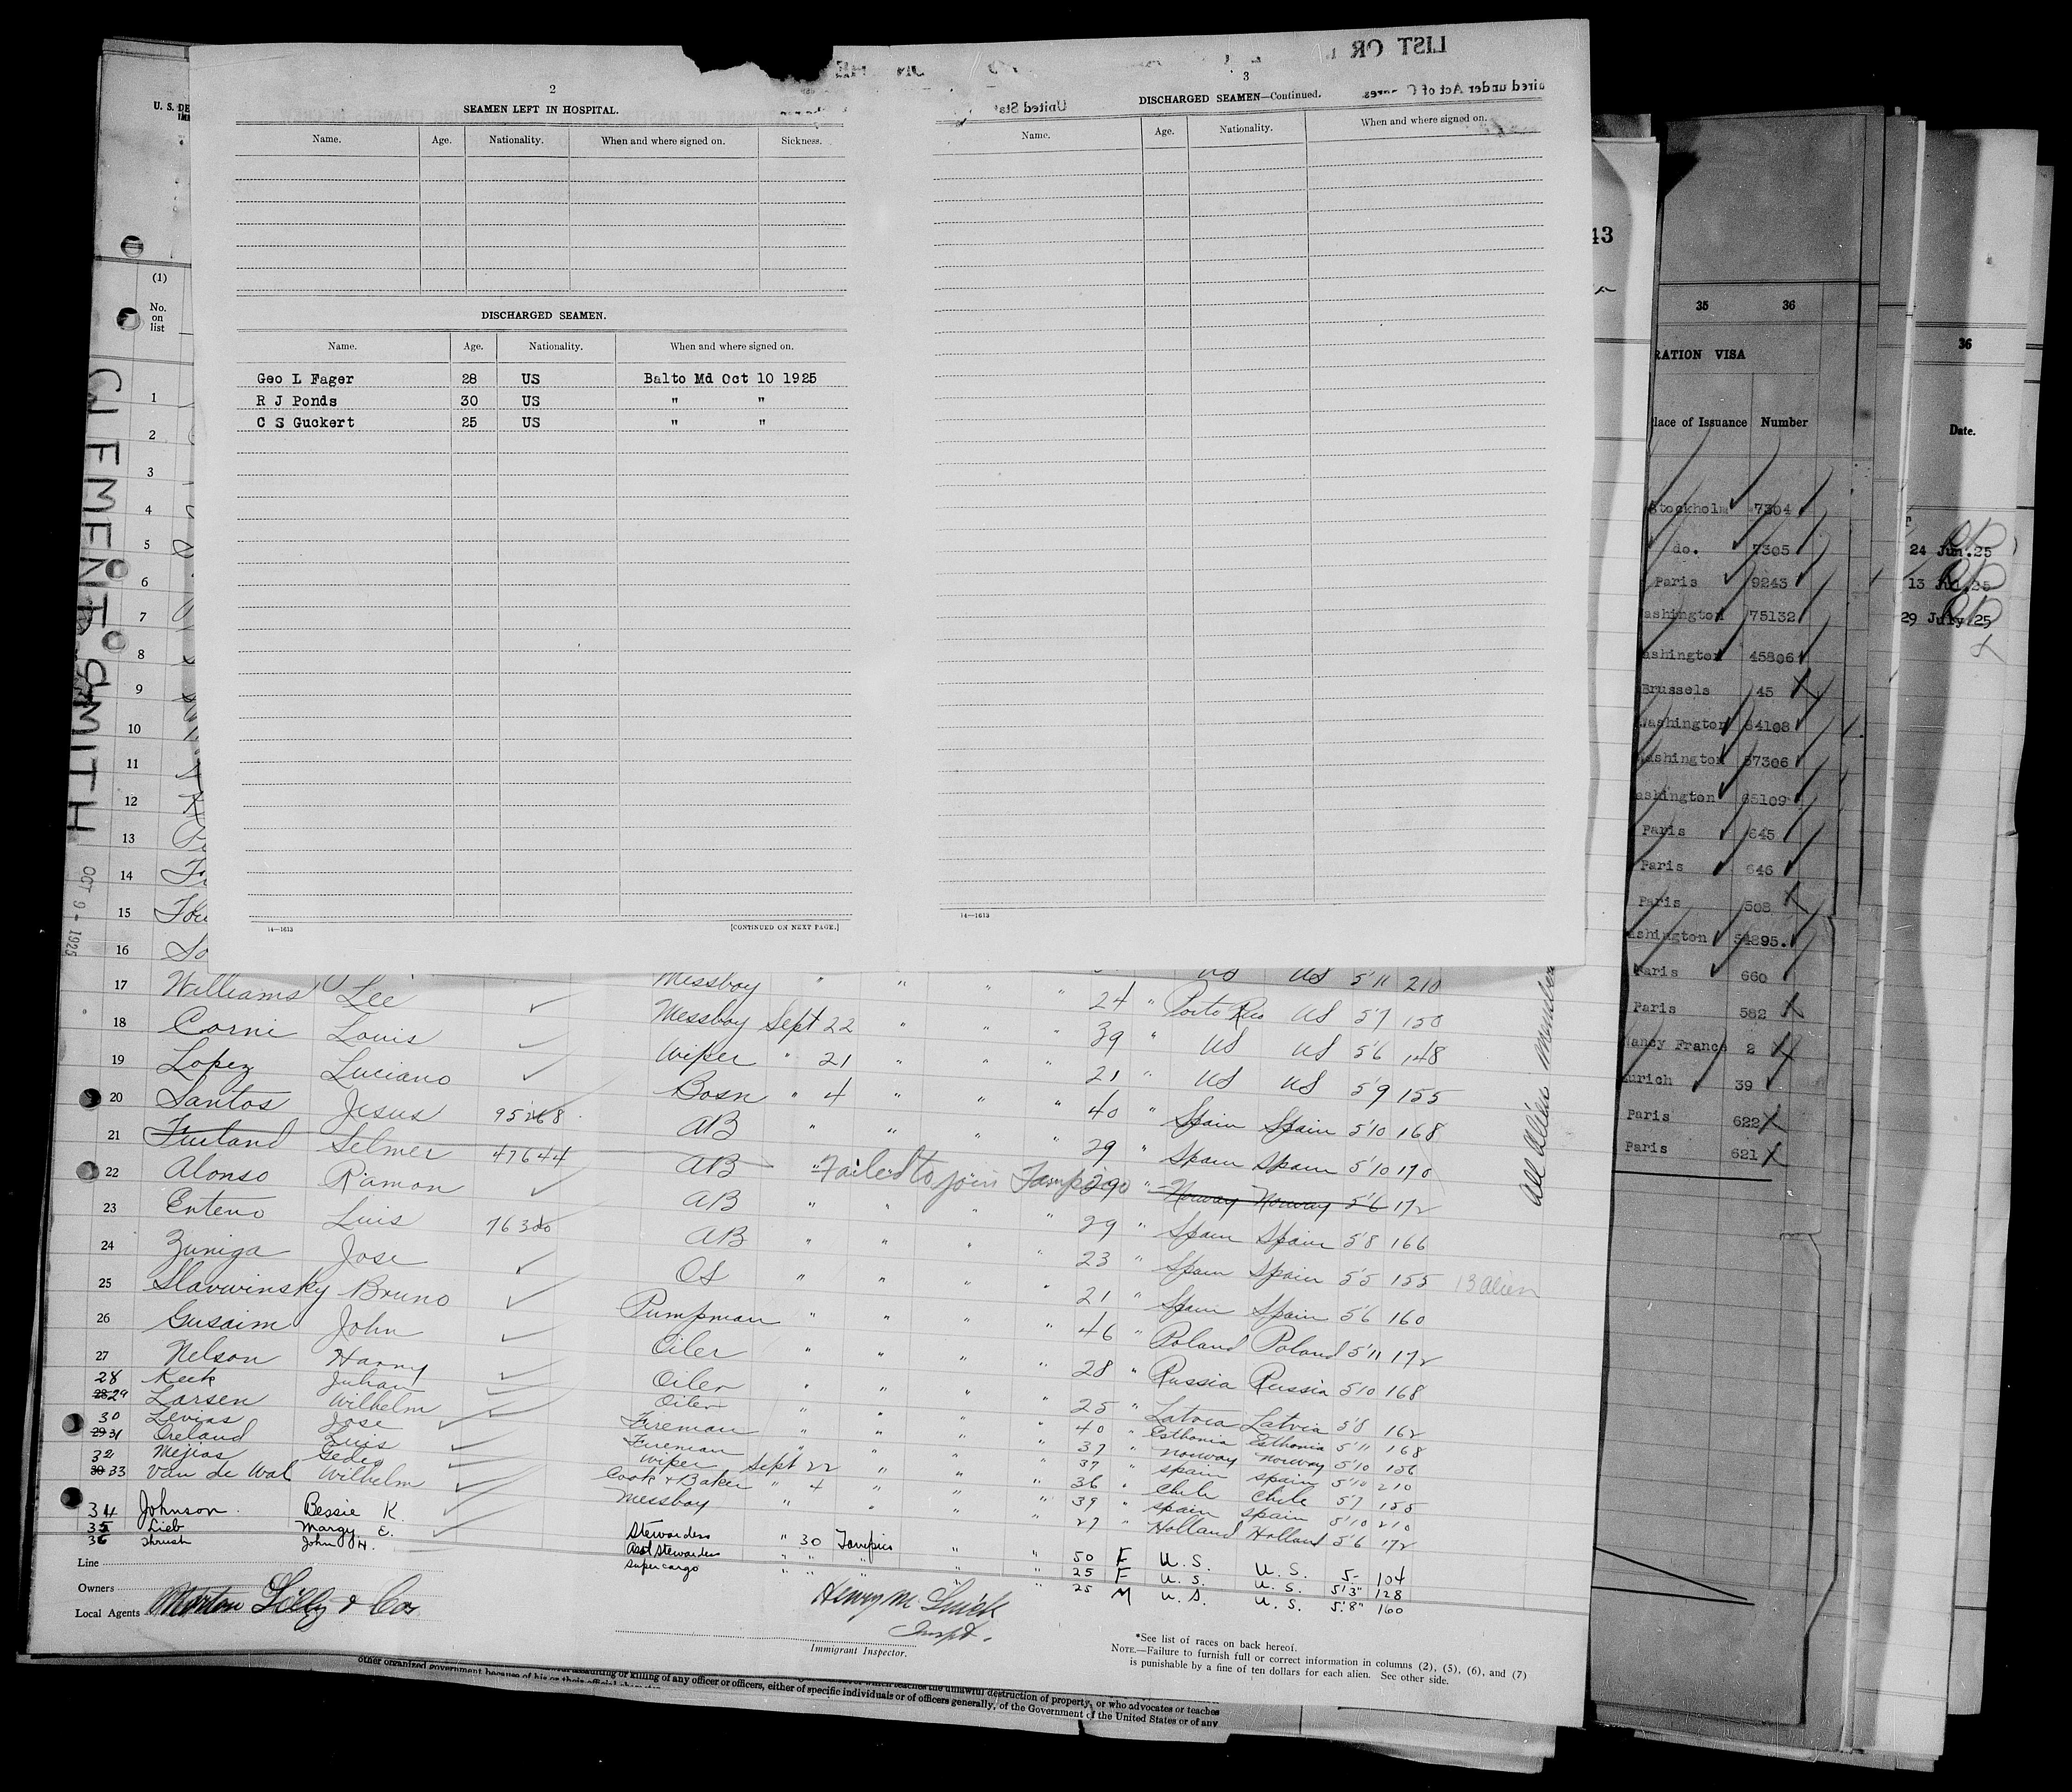 2
SEAMEN LEFT IN HOSPITAL.
Name. Age. Nationality. When and where signed on. Sickness.
DISCHARGED SEAMEN.
Name. Age. Nationality. When and where signed on.
Geo L Fager 28 US Balto Md Oct 10 1925
R J Ponds 30 US " "
C S Guckert 25 US " "
14—1613 [CONTINUED ON NEXT PAGE.]
LIST OR
3
DISCHARGED SEAMEN—Continued.
United Stat
ired under Act of C
Name. Age. Nationality. When and where signed on.
14—1613
U. S. DE
(1)
No. on list
CLEMENT SMITH OCT 9- 1925
1
2
3
4
5
6
7
8
9
10
11
12
13
14
15
16
US US 5'11 210
17 Williams Lee Messboy " " " " 24 " Porto Rico US 5'7 150
18 Corni Louis Messboy Sept 22 " " " 39 " US US 5'6 148
19 Lopez Luciano Wiper " 21 " " " 21 " US US 5'9 155
20 Santos Jesus 95268 Bosn " 4 " " " 40 " Spain Spain 5'10 168
21 Selmer 47644 AB " " " " 29 " Spain Spain 5'10 170
22 Alonso Ramon AB " Failed to join Tampico 29 " Norway Norway 5'6 172
23 Enteno Luis 76300 AB " " " " 29 " Spain Spain 5'8 166
24 Zuniga Jose AB " " " " 23 " Spain Spain 5'5 155 13 alien
25 Slavwinsky Bruno OS " " " " 21 " Spain Spain 5'6 160
26 Gusaim John Pumpman " " " " 46 " Poland Poland 5'11 172
27 Nelson Harry Oiler " " " " 28 " Russia Russia 5'10 168
28 Keek Julian Oiler " " " " 25 " Latvia Latvia 5'8 162
28 29 Larsen Wilhelm Oiler " " " " 40 " Esthonia Esthonia 5'11 168
30 Levias Jose Fireman " " " " 37 " Norway Norway 5'10 156
29 31 Oreland Luis Fireman " " " " 37 " Spain Spain 5'10 210
32 Mejias Wiper Sept 22 " " " 36 " Chile Chile 5'7 155
30 33 Van de Wal Wilhelm Cook & Baker " 4 " " " 39 " Spain Spain 5'10 210
Messboy " " " " 27 " Holland Holland 5'6 172
34 Johnson Bessie K. Stewardess " 30 Tampico " " 50 F U.S. U.S. 5- 104
35 Lieb Margy E. Asst Stewardess " " " " " 25 F U.S. U.S. 5'3" 128
36 Thrush John H. Supercargo " " " " " 25 M U.S. U.S. 5'8" 160
All Alien Members
Line
Owners
Local Agents Lilly & Co
Henry M.
Inspt.
Immigrant Inspector.
*See list of races on back hereof.
NOTE.—Failure to furnish full or correct information in columns (2), (5), (6), and (7)
is punishable by a fine of ten dollars for each alien. See other side.
assaulting or killing of any officer or officers, either of specific individuals or of officers generally, of the Government of the United States or of any
other organized government because of his or their official
teaches the unlawful destruction of property, or who advocates or teaches
43
35 36
RATION VISA
lace of Issuance Number
Stockholm 7304
do. 7305
Paris 9243
ashington 75132
ashington 45806
Brussels 45
Washington 64108
ashington 57306
ashington 65109
Paris 645
Paris 646
Paris 508
shington 54895.
Paris 660
Paris 582
Nancy France 2
urich 39
Paris 622
Paris 621
36
Date.
24 Jun.25
13 Jul.25
29 July.25